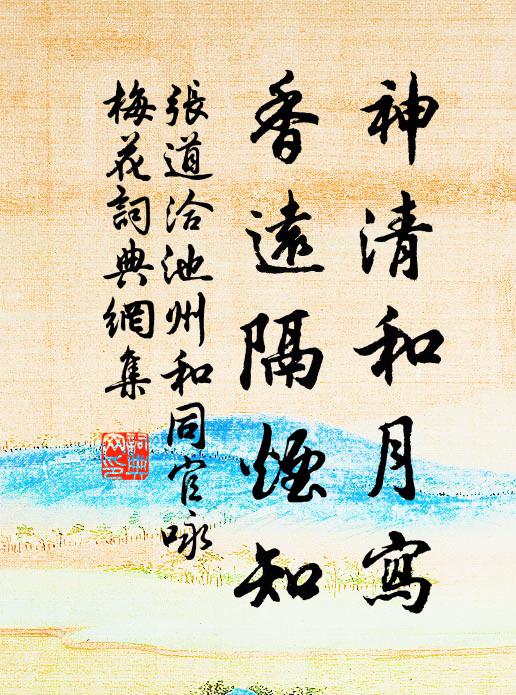 神清和月寫
香遠隔煙知
張道洽池州和同官咏
梅花詞典網集